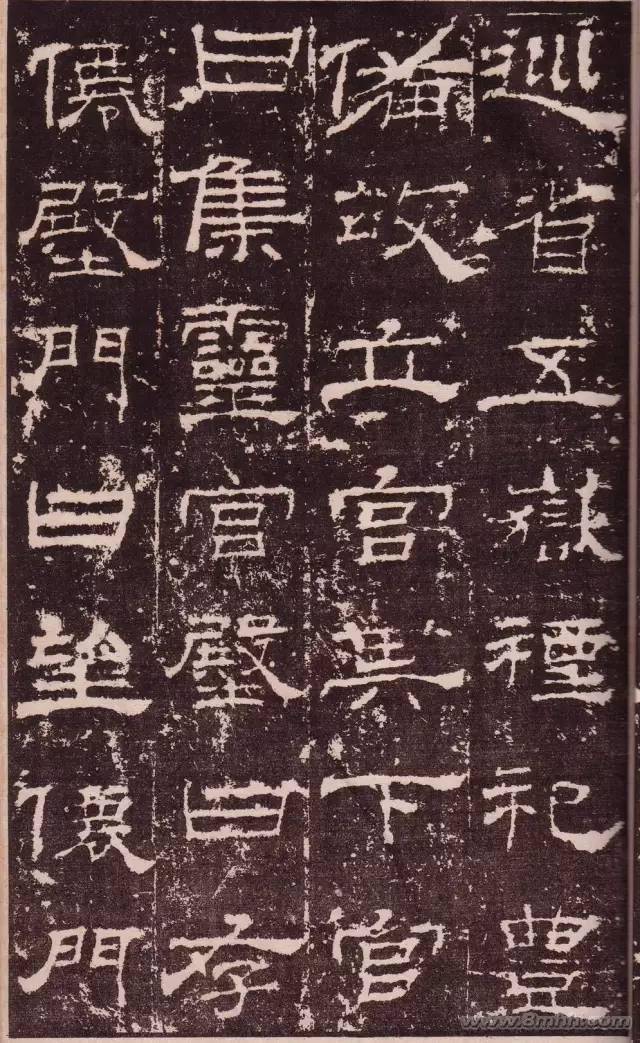 巡省五嶽禋祀豊
備故立宮其下宮
曰集靈宮壂曰存
僊壂門曰望僊門